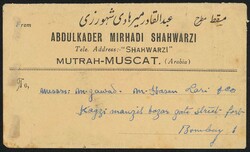 عبدالقادر میرهادی شهورزی
مسقط مطرح
From
ABDULKADER MIRHADI SHAHWARZI
Tele. Address:-"SHAHWARZI"
MUTRAH-MUSCAT. (Arabia)
To,
Messrs. M. Jawad M. Hasan Lari & Co
Kazzi manzil bazar gate street fort
Bombay 1